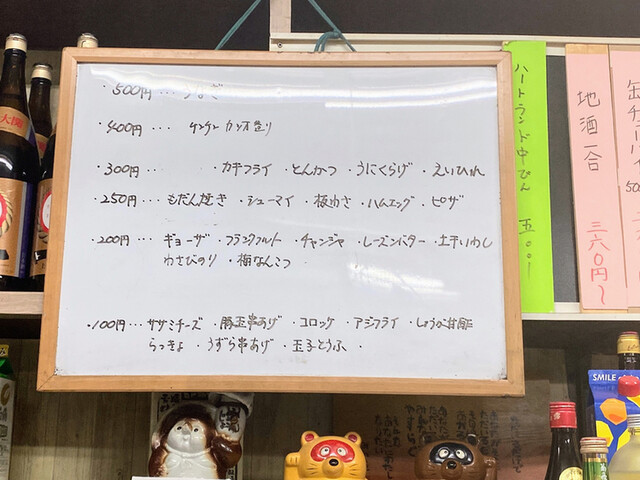 ・500円… うなぎ
・400円… ケンケンカツオ造り
・300円… ・カキフライ ・とんかつ ・うにくらげ ・えいひれ
・250円… もだん焼き ・シューマイ ・板わさ ・ハムエッグ ・ピザ
・200円… ギョーザ ・フランクフルト ・チャンジャ ・レーズンバター ・土干いわし
わさびのり ・梅なんこつ
・100円… ササミチーズ ・豚玉串あげ ・コロッケ ・アジフライ ・しょうが甘酢
らっきょ ・うずら串あげ ・玉子とうふ ・
ハートランド中びん 五〇〇
地酒一合 三六〇円〜
SMILE